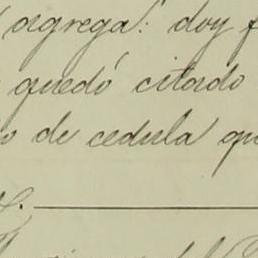 agrega: doy f
quedó citado
o de cedula qu